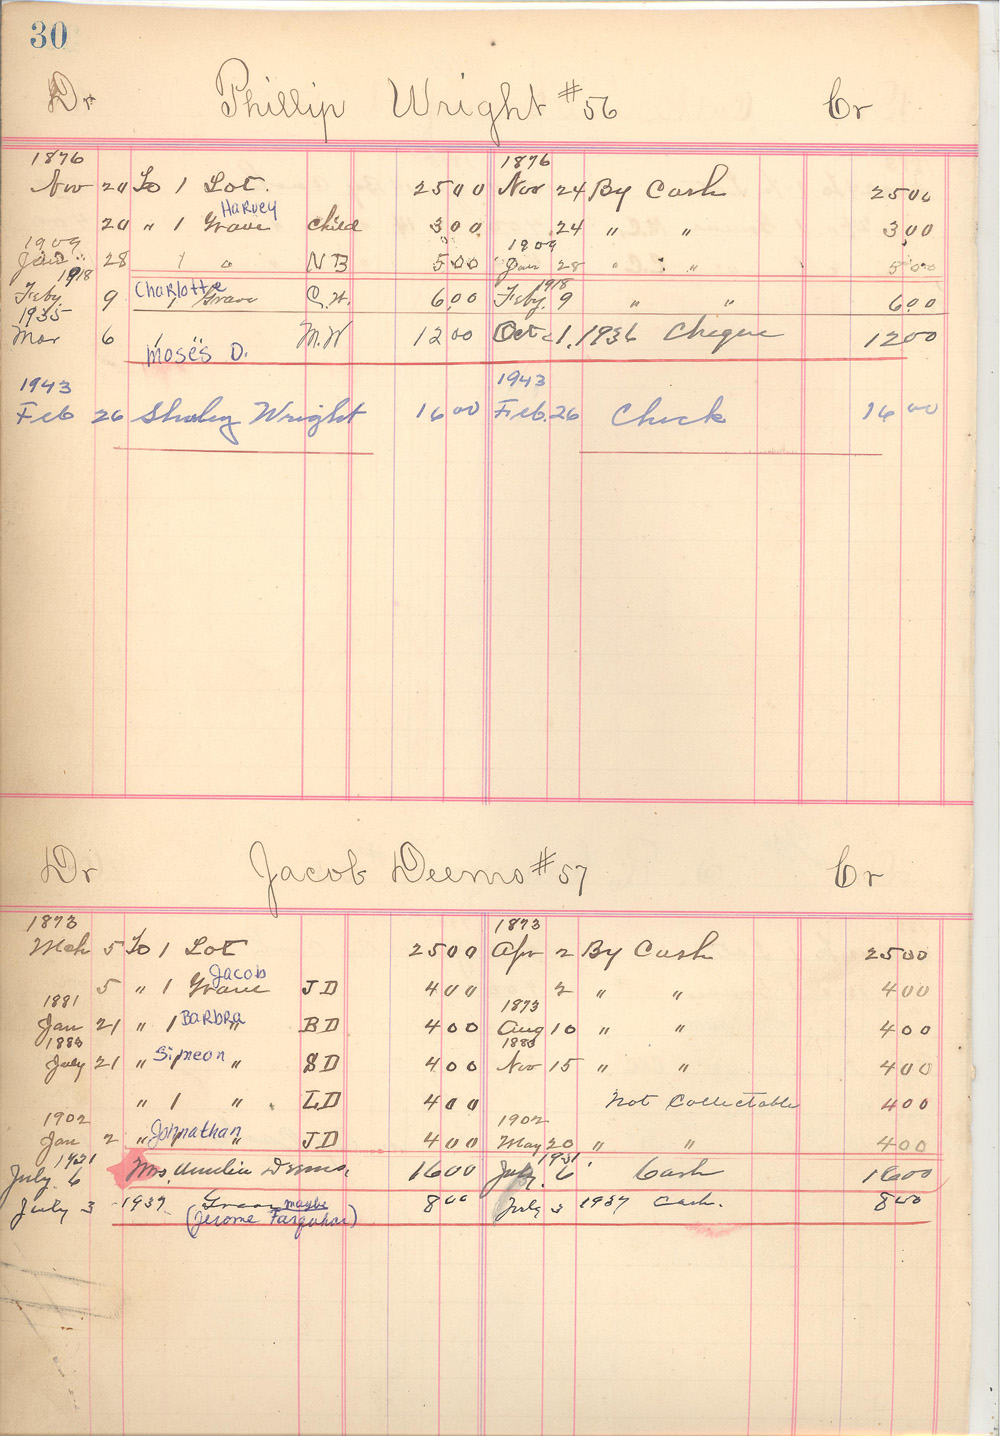 30
Dr Phillip Wright #56 Cr
1876 1876
Nov 20 To 1 Lot. 25 00 Nov 24 By Cash 25 00
Harvey
20 " 1 Grave child 3 00 24 " " 3 00
1909 1909
Jan 28 1 " N B 5 00 Jan 28 " " 5 00
1918 Charlotte 1918
Feby. 9 1 Grave C. W. 6 00 Feby. 9 " " 6 00
1935
Mar 6 " M. W 12 00 Oct 1. 1936 Cheque 12 00
Moses D.
1943 1943
Feb 26 Wright 16 00 Feb. 26 Check 16 00
Dr Jacob Deems #57 Cr
1873 1873
Mch 5 To 1 Lot 25 00 Apr 2 By Cash 25 00
Jacob
5 " 1 Grave J D 4 00 2 " " 4 00
1881 1873
Jan 21 " 1 Barbra " B D 4 00 Aug 10 " " 4 00
1883 1883
July 21 " Simeon " S D 4 00 Nov 15 " " 4 00
" 1 " L D 4 00 Not Collectable 4 00
1902 1902
Jan 2 " Johnathan " J D 4 00 May 20 " " 4 00
1931 1931
July. 6 Mrs. Amelia Deems. 16 00 July. 6 Cash 16 00
July 3 1937 Grave maybe 8 00 July 3 1937 Cash. 8 00
(Jerome Farquhar)